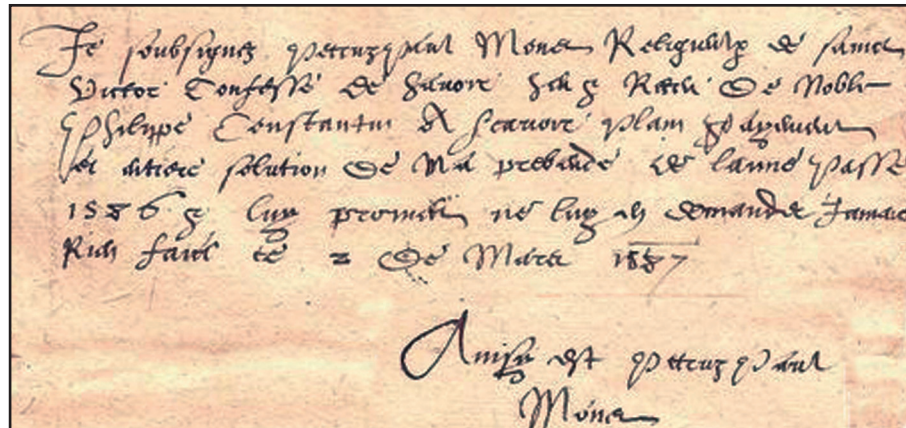 Je soubsignez petruz paul Moner Religieulx de sainct
Victor Confesse de havoir heu & Receu De Noble
Philippe Constantin A scavoir plain
et entiere solution De Ma prebande de lanne passe
1586 & luy prometz ne luy en demander Jamais
Rien faict ce 2 De Mars 1587
Ainsy est petruz paul
Moner